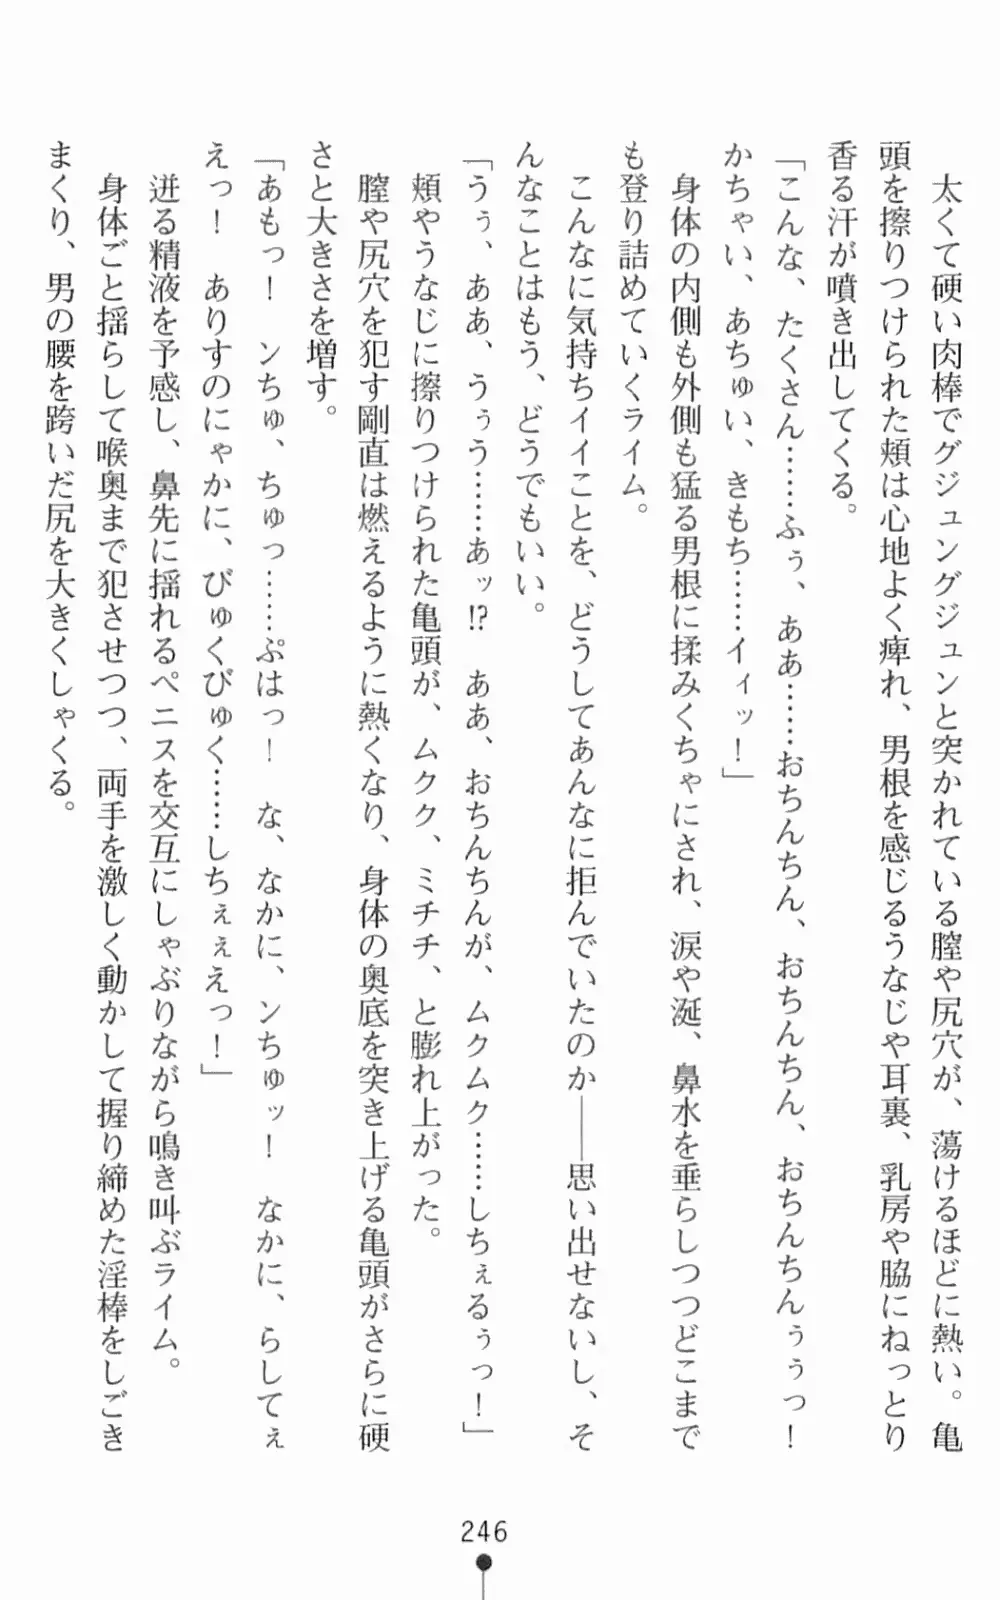 太くて硬い肉棒でグジュングジュンと突かれている膣や尻穴が、蕩けるほどに熱い。亀
頭を擦りつけられた頬は心地よく痺れ、男根を感じるうなじや耳裏、乳房や脇にねっとり
香る汗が噴き出してくる。
「こんな、たくさん……ふぅ、ああ……おちんちん、おちんちん、おちんちんぅぅっ！
かちゃい、あちゅい、きもち……イィッ！」
身体の内側も外側も猛る男根に揉みくちゃにされ、涙や涎、鼻水を垂らしつつどこまで
も登り詰めていくライム。
こんなに気持ちイイことを、どうしてあんなに拒んでいたのか――思い出せないし、そ
んなことはもう、どうでもいい。
「うぅ、ああ、うぅう……あッ!?　ああ、おちんちんが、ムクムク……しちぇるぅっ！」
頬やうなじに擦りつけられた亀頭が、ムクク、ミチチ、と膨れ上がった。
膣や尻穴を犯す剛直は燃えるように熱くなり、身体の奥底を突き上げる亀頭がさらに硬
さと大きさを増す。
「あもっ！　ンちゅ、ちゅっ……ぷはっ！　な、なかに、ンちゅッ！　なかに、らしてぇ
えっ！　ありすのにゃかに、びゅくびゅく……しちぇぇえっ！」
迸る精液を予感し、鼻先に揺れるペニスを交互にしゃぶりながら鳴き叫ぶライム。
身体ごと揺らして喉奥まで犯させつつ、両手を激しく動かして握り締めた淫棒をしごき
まくり、男の腰を跨いだ尻を大きくしゃくる。
246